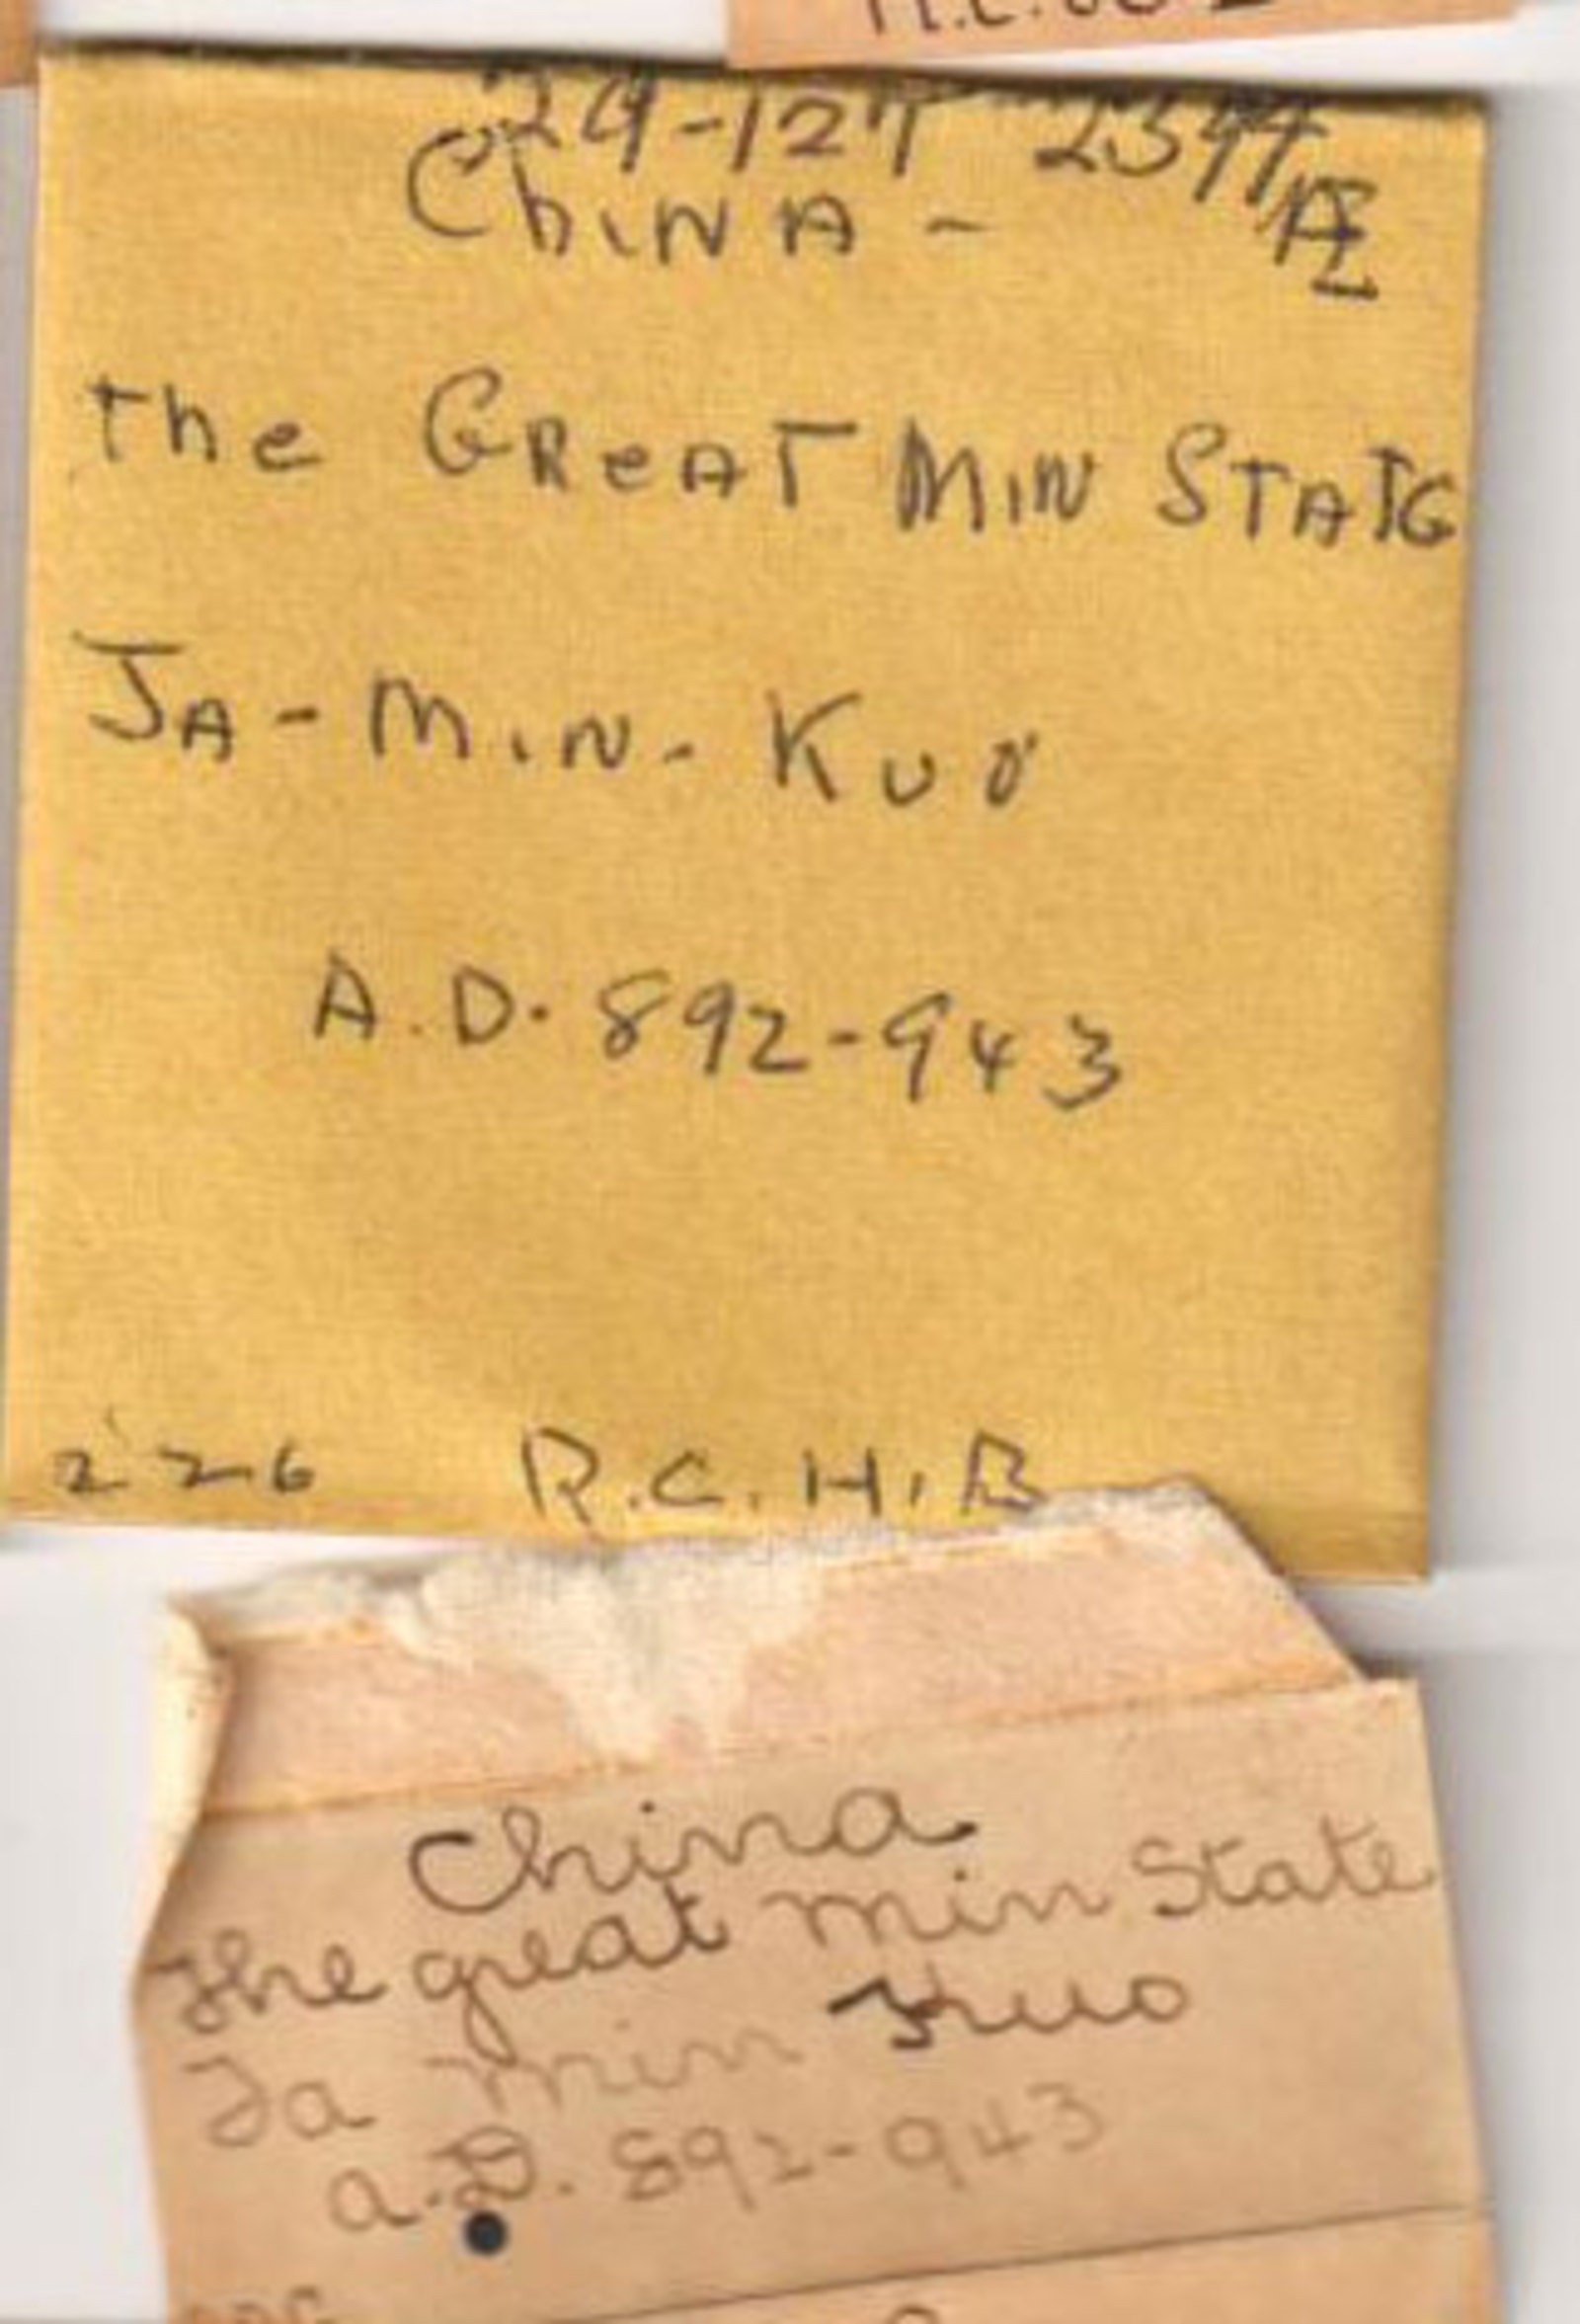 29-127 2344
China - AE
The Great Min State
Ja - Min - Kuo
A.D. 892-943
226 R.C.H.B
China
The great min State
Ja min Kuo
a.D. 892-943